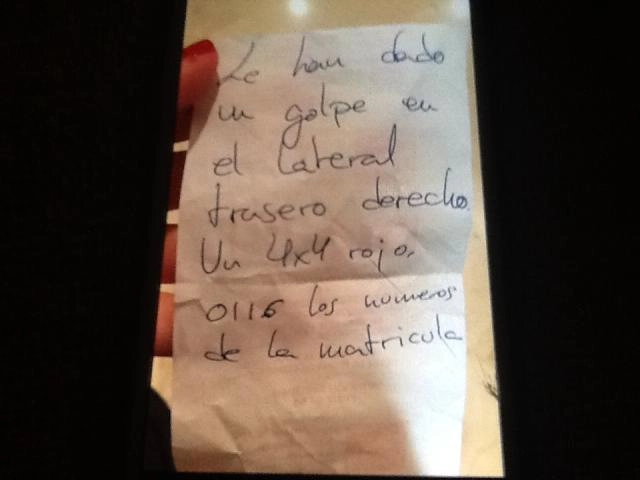 Le han dado
un golpe en
el lateral
trasero derecho.
Un 4x4 rojo.
0116 los numeros
de la matricula